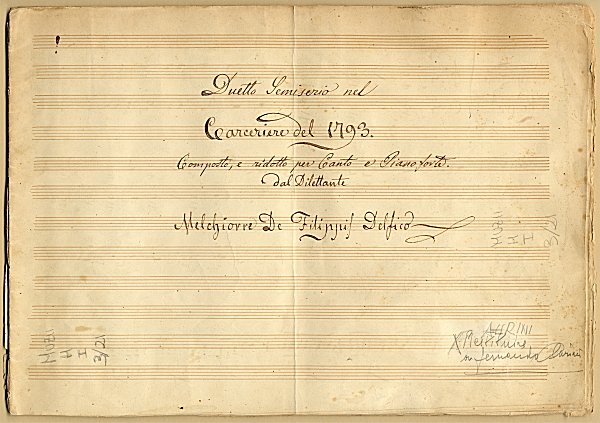 Duetto Semiserio nel
Carceriere del 1793.
Composto, e ridotto per Canto e Piano forte
dal Dilettante
Melchiorre De Filippis Delfico
MUZII
H
I
3/21
MUZII
H
I
3/21
AURINI
X Restituire
a Fernando Aurini